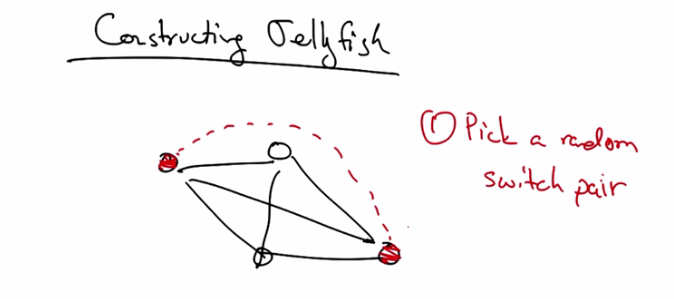 Constructing Jellyfish
① Pick a random
switch pair